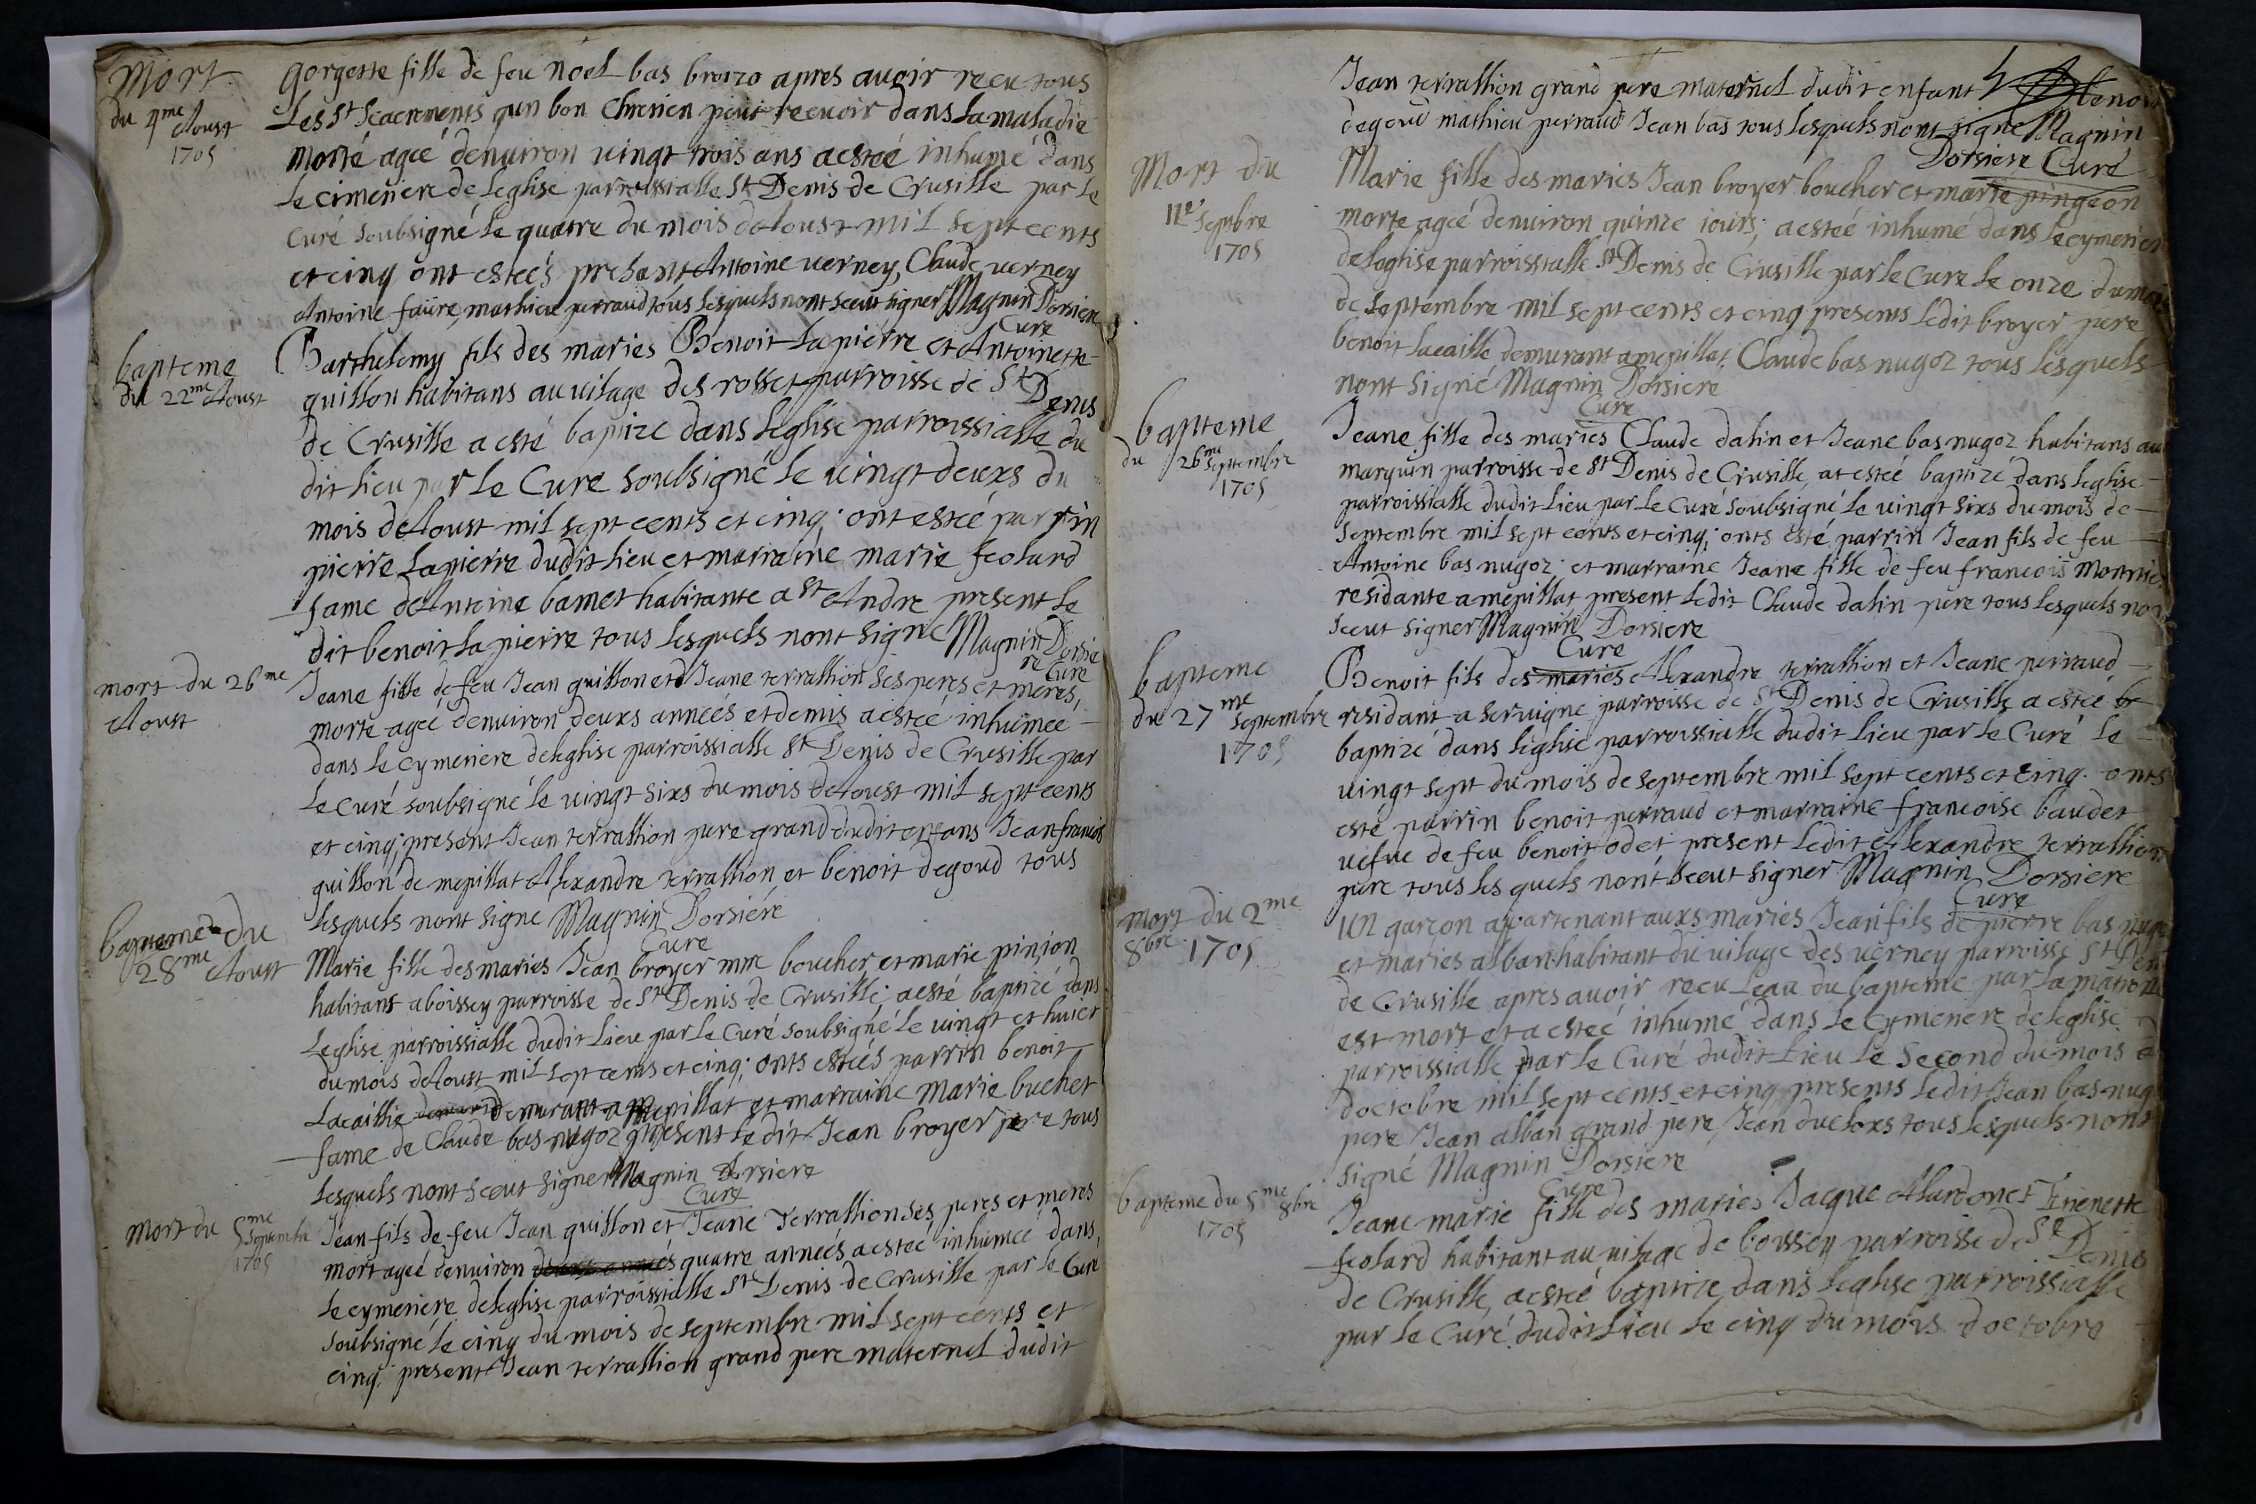 Mort
du 4me Aoust
1705
gorgette fille de feu noel bas broizo apres avoir receu tous
Les St Seacrements qun bon Chretien peut recevoir dans La maladie
morte ageé denviron vingt trois ans a estée inhumé dans
Le cimetiere de Leglise parroissialle St Denis de Crusille par Le
Curé Soubsigné le quatre du mois daoust mil sept cents
et cinq ont esteés presant Antoine verney, Claude verney
Antoine faure, mathieu perraud tous lesquels nont sceut signer Magnin Dorsiere
Cure
bapteme
du 22me Aoust
Barthelemy fils des maries Benoit Lapierre et Antoinette
guillon habitans au vilage des rosset parroisse de St Denis
de Crusille a esté baptize dans Leglise parroissialle du
dit lieu par Le Cure Soubsigné le vingt deuxs du
mois daoust mil sept cents et cinq; ont estée parrin
pierre Lapierre dudit Lieu et marraine marie feolard
fame dantoine bamet habitante a St Andre present Le
dit benoit Lapierre tous Lesquels nont signe Magnin Dorsie
re Cure
mort du 26me
Aoust
Jeane fille de feu Jean guillon et Jeane terrallion Ses peres et meres,
morte ageé denviron deuxs anneés et demis a esteé inhumee
dans Le cymetiere deleglise parroissialle St Denis de Crusille par
Le Curé soubsigné le vingt sixs du mois daoust mil sept cents
et cinq; present Jean terrallion pere grand dudit enfans Jean francois
guillon de mepillat Alexandre terrallion et benoit degoud tous
Lesquels nont signe Magnin Dorsiére
Cure
bapteme du
28me Aoust
Marie fille des maries Jean broyer mre boucher, et marie pinion
habitant a boissey parroisse de St Denis de Crusille; a esté baptizé dans
Leglise parroissialle dudit Lieu par Le Curé soubsigné le vingt et huict
du mois daoust mil sept cents et cinq; onts esteés parrin benoit
Lacaillie demurant a mepillat et marraine Marie buchet
fame de Claude bas nugoz present Le dit Jean broyer pere tous
Lesquels nont sceut signer Magnin Dorsiere
Cure
Mort du 5me Septembre
1705
Jean fils de feu Jean guillon et Jeane Terrallion Ses peres et meres
mort ageé denviron deuxs anneés quatre anneés a esteé inhumeé dans
Le cymetiere deleglise parroissialle St Denis de Crusille par Le Curé
Soubsigné le cinq du mois de septembre mil sept cents et
cinq present Jean terrallion grand pere maternel dudit
Jean terrallion grand pere maternel dudit enfant benoit
degoud mathieu perraud Jean bas tous Lesquels nont signe Magnin
Dorsiere Curé
Mort du
11e Sepbre
1705
Marie fille des maries Jean broyer boucher et marie pingeon
morte ageé denviron quinze iours; a esteé inhumé dans Le cymetier
deleglise parroissialle St Denis de Crusille par Le Cure le onze du mois
de Septembre mil sept cents et cinq presents Ledit broyer pere
benoit Lacaille demurant a mepillat, Claude bas nugoz tous lesquels
nont signé Magnin Dorsiere
Cure
bapteme
du 26me Septembre
1705
Jeane fille des maries Claude dalin et Jeane bas nugoz habitans au
marquin parroisse de St Denis de Crusille at esteé baptizé dans leglise
parroissialle dudit Lieu par Le Curé Soubsigné Le vingt sixs du mois de
Septembre mil sept cents et cinq; onts esté parrin Jean fils de feu
Antoine bas nugoz et marraine Jeane fille de feu francois monnie
residante a mepillat present Ledit Claude dalin pere tous Lesquels non
sceut signer Magnin Dorsiere
Cure
bapteme
du 27me Septembre
1705
Benoit fils des maries Alexandre terrallion et Jeane perraud
residant a Servigne parroisse de St Denis de Crusille a esteé
baptizé dans Leglise parroissialle dudit Lieu par Le Curé Le
vingt sept du mois de septembre mil sept cents et cinq. onts
esté parrin benoit perraud et marraine francoise baudet
vefve de feu benoit odet present Ledit Alexandre terrallion
pere tous les quels nont sceut signer Magnin Dorsiere
Cure
mort du 2me
8bre 1705
Un garçon apartenant auxs maries Jean fils de pierre bas nugo
et maries alban habitant du vilage des verney parroisse St Den
de Crusille apres avoir receu Leau du bapteme par La matrone
est mort et a esteé inhumé dans Le cymetiere deleglise
parroissialle par le Curé dudit Lieu Le Second du mois
doctobre mil sept cents et cinq presents Ledit Jean bas nug
pere Jean alban grand pere, Jean ducloxs tous Lesquels nont
signé Magnin Dorsiere
Cure
bapteme du 5me 8bre
1705
Jeane marie fille des maries Jacque Alardon et Etienette
feolard habitant au vilage de boissey parroisse de St Denis
de Crusille, a esteé baptize dans Leglise parroissialle
par le Curé dudit Lieu le cinq du mois doctobre